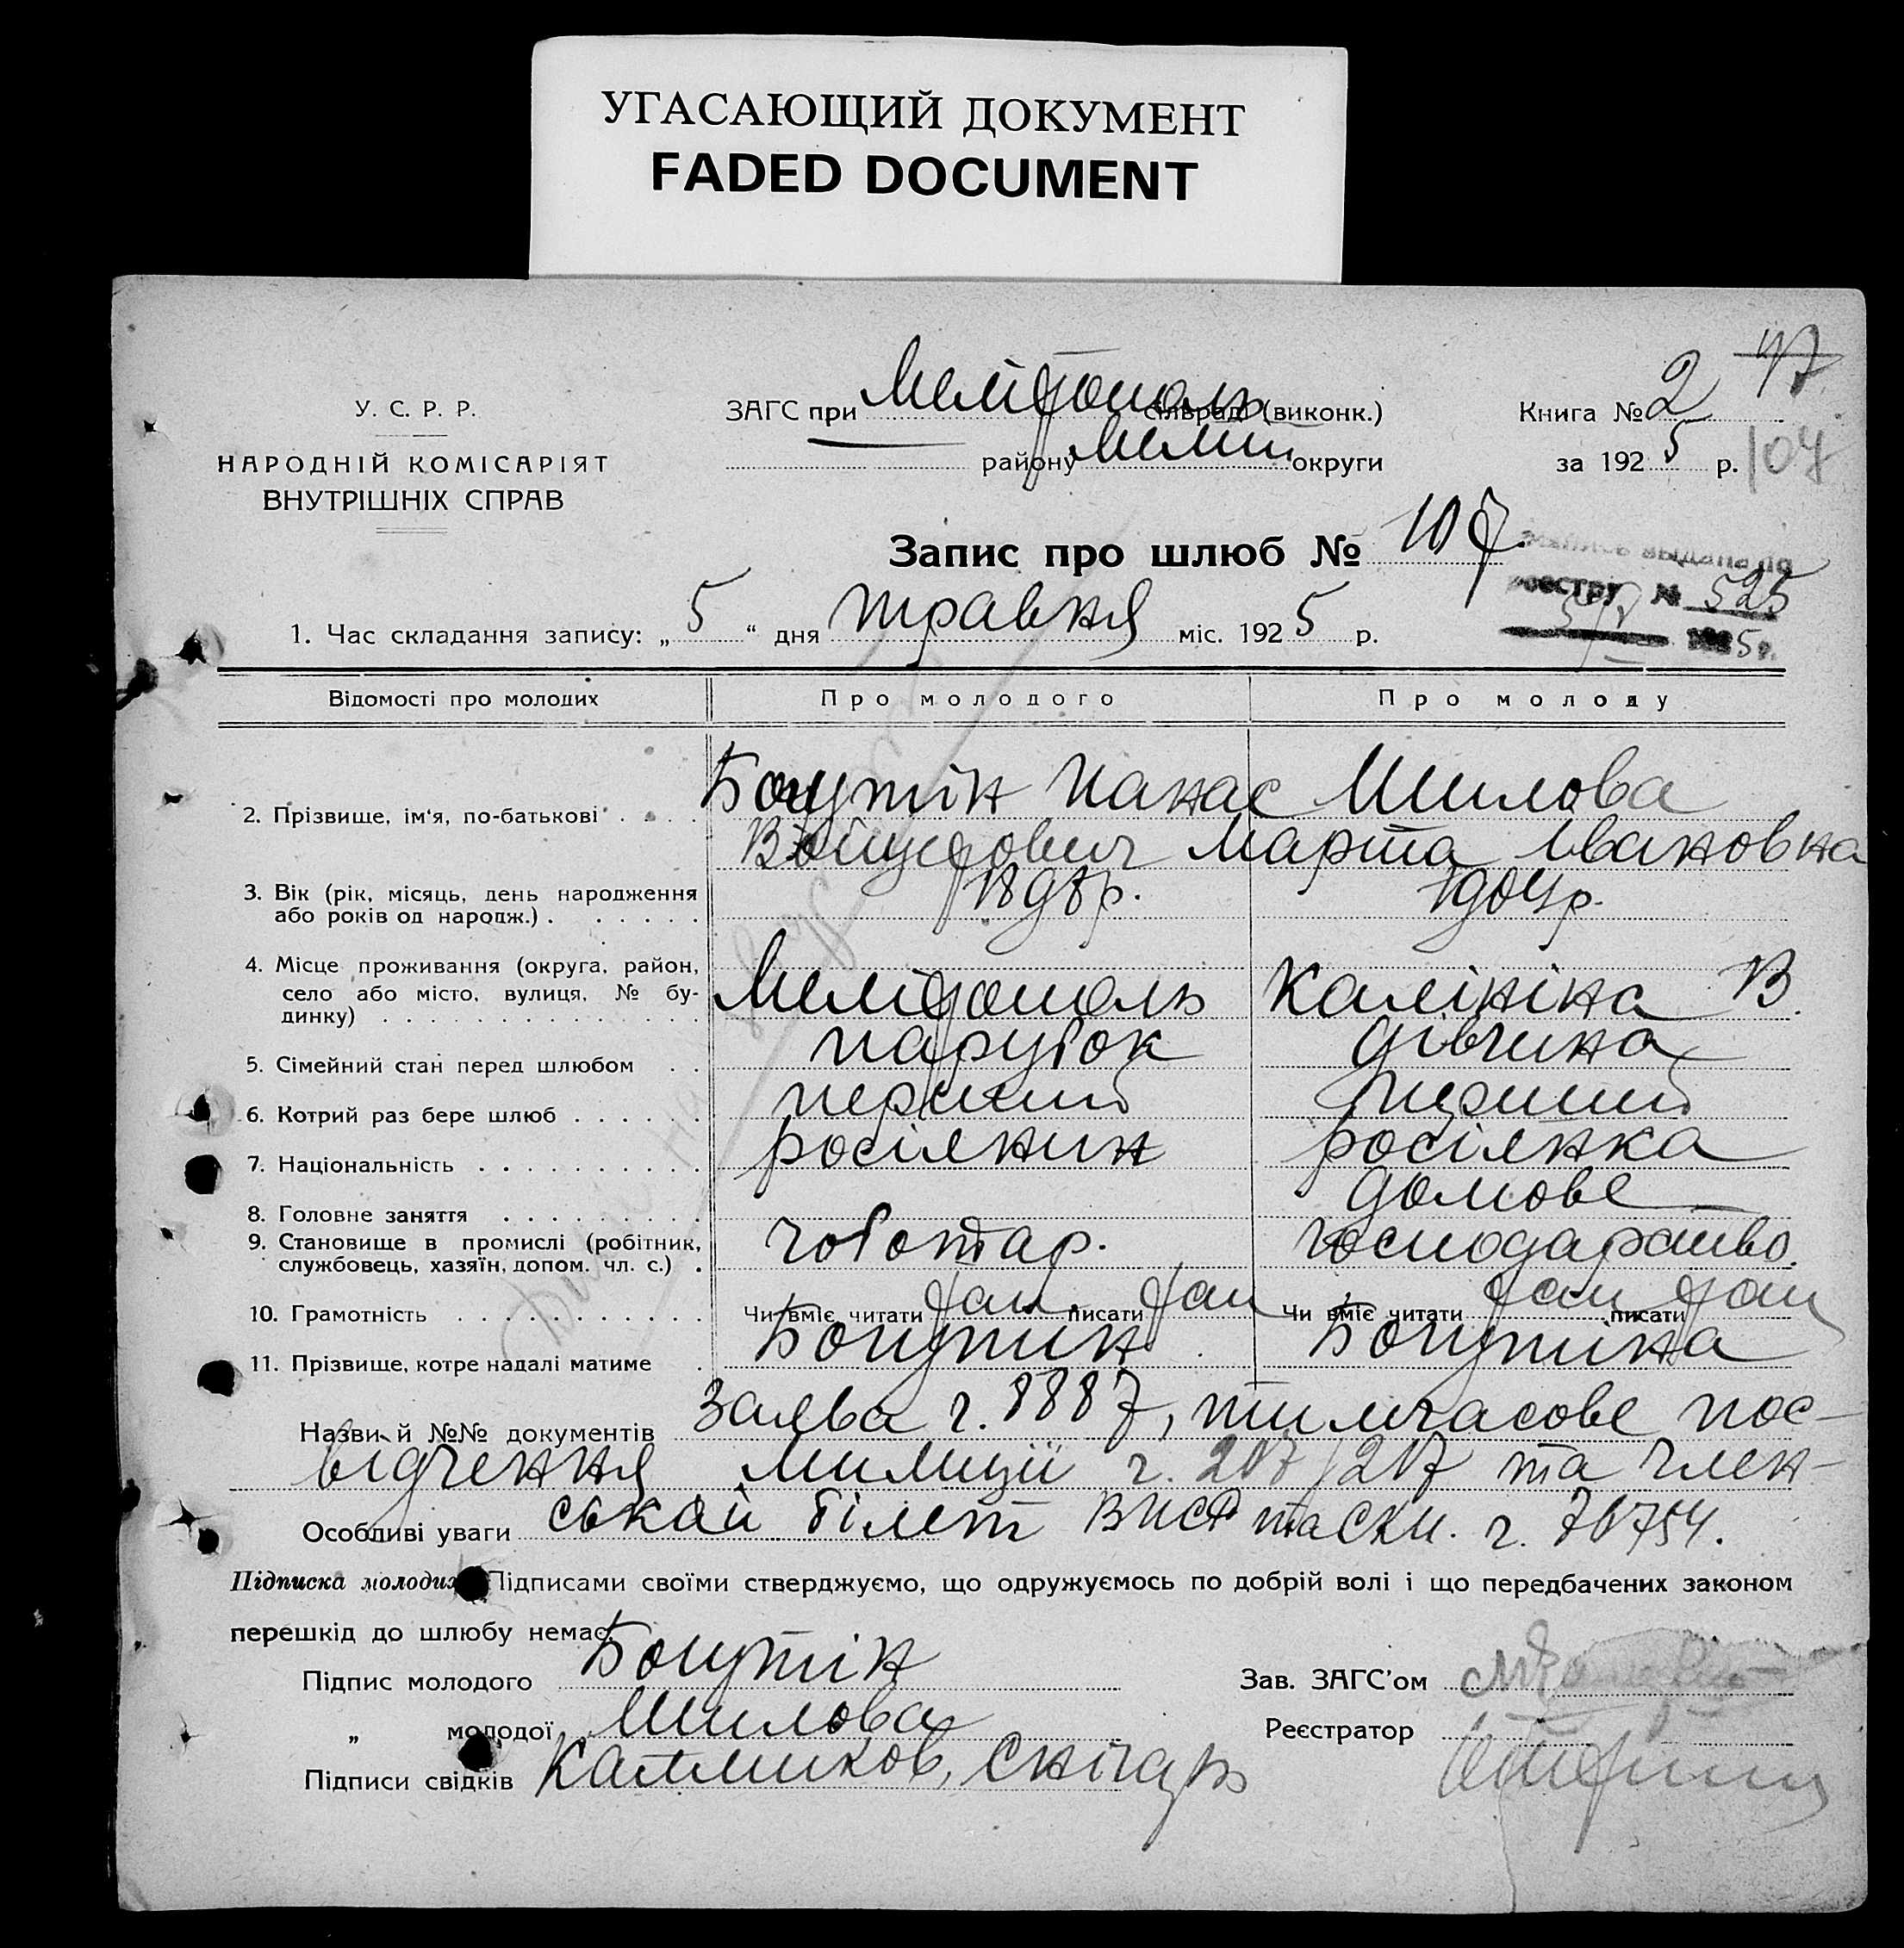 УГАСАЮЩИЙ ДОКУМЕНТ
FADED DOCUMENT
47
У. С. Р. Р.
НАРОДНІЙ КОМІСАРІЯТ
ВНУТРІШНІХ СПРАВ
ЗАГС при Мелітополь сільраді (виконк.)
району Меліт округи
Книга № 2
за 1925 р.
107
Запис про шлюб № 107.
выдана по
реестру № 525
5 р.
1. Час складання запису: „ 5 “ дня травня міс. 1925 р.
Відомості про молодих Про молодого Про молоду
2. Прізвище, ім‘я, по-батькові . . . . Панас Шилова
Марта Івановна
3. Вік (рік, місяць, день народження 1898р. 1904р.
або років од народж.) . . . . . .
4. Місце проживання (округа, район,
село або місто, вулиця, № бу- Мелітополь Калініна В.
динку) . . . . . . . . . . . . . .
5. Сімейний стан перед шлюбом . . парубок дівчина
6. Котрий раз бере шлюб . . . . . . перший перший
7. Національність . . . . . . . . . . росіянин росіянка
8. Головне заняття . . . . . . . . . домове
9. Становище в промислі (робітник, чоботар. господарство.
службовець, хазяїн, допом. чл. с.) .
10. Грамотність . . . . . . . . . . . Чи вміє читати так писати так Чи вміє читати так писати так
11. Прізвище, котре надалі матиме .
Назви й №№ документів Заява ч. 8887, тимчасове пос-
відчення милиції ч. 217/217 та член-
Особливі уваги ський білет ч. 76754.
Підписка молодих Підписами своїми стверджуємо, що одружуємось по добрій волі і що передбачених законом
перешкід до шлюбу немає.
Підпис молодого
Зав. ЗАГС’ом
„ молодої Шилова
Реєстратор
Підписи свідків Калмиков,